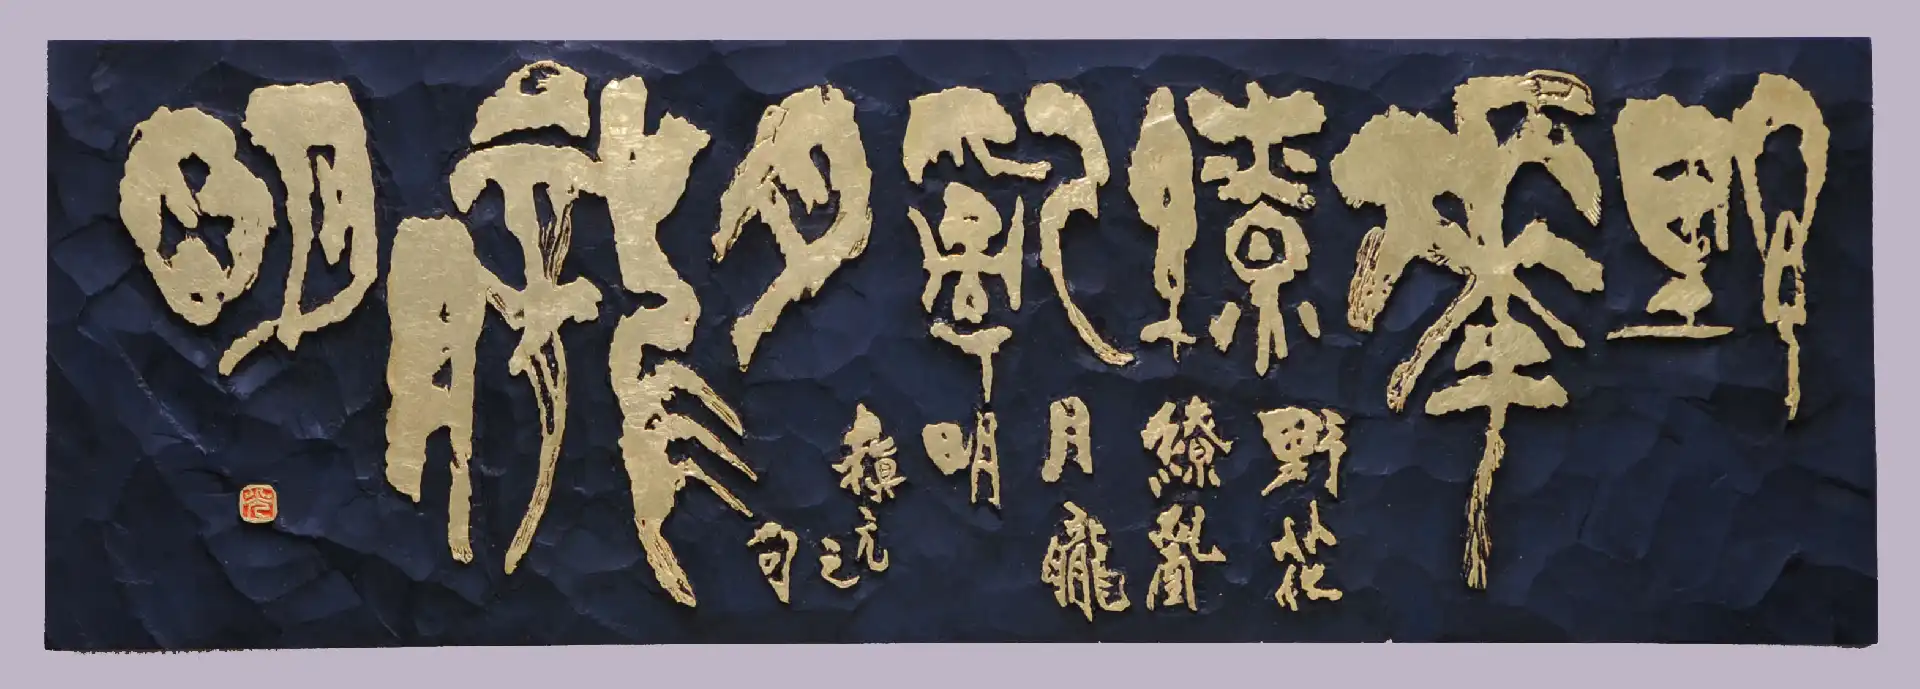 野華繚亂月朧明
野花
繚亂
月朧
明
稹元之
句